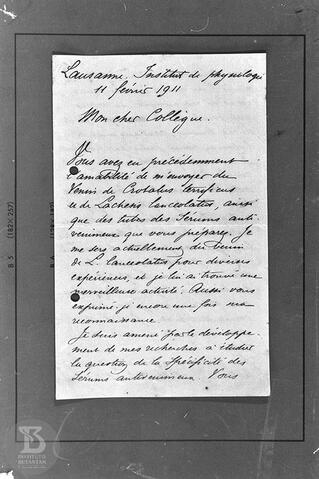 Lausanne, Institut de physiologie
11 février 1911
Mon cher Collègue.
Vous avez eu précédemment
l'amabilité de m'envoyer du
Venin de Crotalus terrificus
et de Lachesis lanceolatus, ainsi
que des tubes des Sérums anti-
venimeux que vous préparez. Je
me sers actuellement du venin
de L. lanceolatus pour diverses
expériences, et je lui ai trouvé une
merveilleuse activité. Aussi vous
exprimé-je encore une fois ma
reconnaissance.
Je suis amené par le développe-
ment de mes recherches à étudier
la question de la Spécificité des
Sérums antivenimeux. Vous
B 5 (182 × 257)
INSTITUTO
BUTANTAN